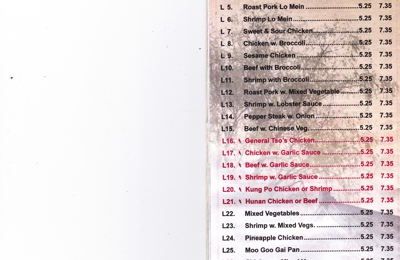 L 5. Roast Pork Lo Mein 5.25 7.35
L 6. Shrimp Lo Mein 5.25 7.35
L 7. Sweet & Sour Chicken 5.25 7.35
L 8. Chicken w. Broccoli 5.25 7.35
L 9. Sesame Chicken 5.25 7.35
L10. Beef with Broccoli 5.25 7.35
L11. Shrimp with Broccoli 5.25 7.35
L12. Roast Pork w. Mixed Vegetable 5.25 7.35
L13. Shrimp w. Lobster Sauce 5.25 7.35
L14. Pepper Steak w. Onion 5.25 7.35
L15. Beef w. Chinese Veg. 5.25 7.35
L16. General Tso's Chicken 5.25 7.35
L17. Chicken w. Garlic Sauce 5.25 7.35
L18. Beef w. Garlic Sauce 5.25 7.35
L19. Shrimp w. Garlic Sauce 5.25 7.35
L20. Kung Po Chicken or Shrimp 5.25 7.35
L21. Hunan Chicken or Beef 5.25 7.35
L22. Mixed Vegetables 5.25 7.35
L23. Shrimp w. Mixed Vegs. 5.25 7.35
L24. Pineapple Chicken 5.25 7.35
L25. Moo Goo Gai Pan 5.25 7.35